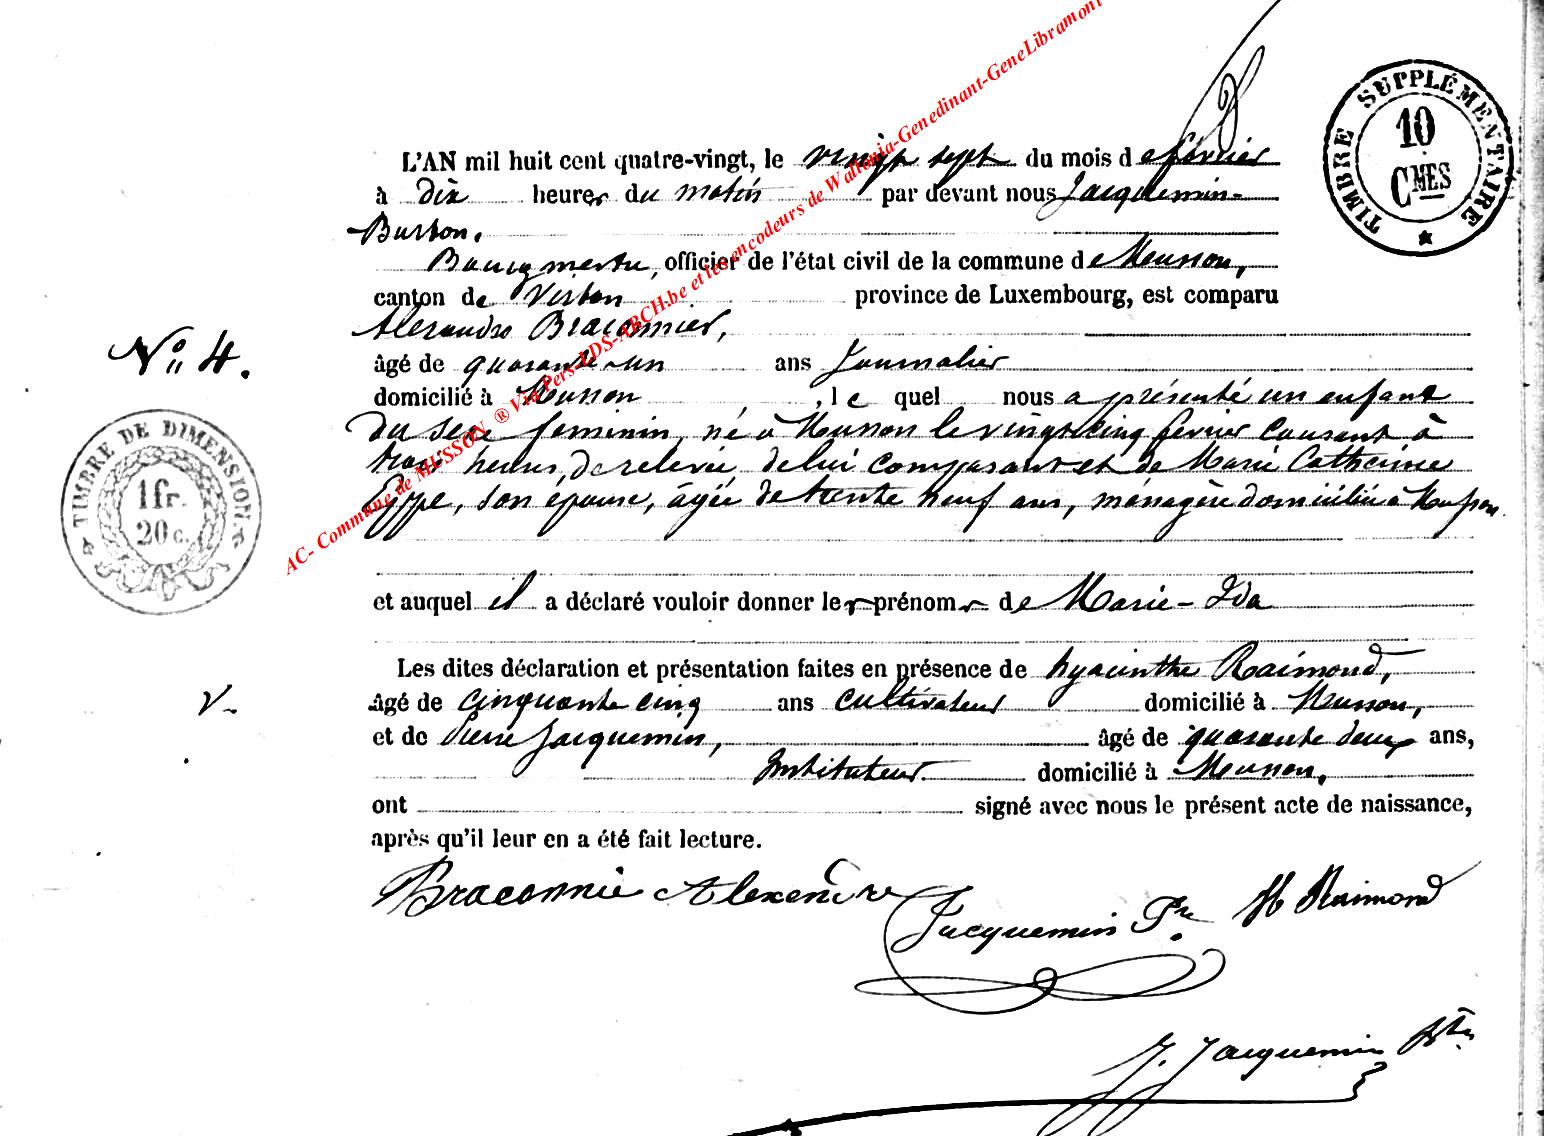 TIMBRE SUPPLÉMENTAIRE
10
CMES
L'AN mil huit cent quatre-vingt, le vingt sept du mois de février
à dix heures du matin par devant nous Jacquemin-
Burton.
Bourgmestre, officier de l'état civil de la commune de Musson,
canton de Virton province de Luxembourg, est comparu
Alexandre Braconnier,
N° 4.
âgé de quarante-un ans Journalier
domicilié à Musson, le quel nous a présenté un enfant
du sexe féminin, né à Musson le vingt-cinq février courant à
trois heures de relevée de lui comparant et de Marie Catherine
Eppe, son épouse, âgée de trente neuf ans, ménagère domiciliée à Musson.
TIMBRE DE DIMENSION
1 fr.
20 c.
et auquel il a déclaré vouloir donner les prénoms de Marie-Ida
Les dites déclaration et présentation faites en présence de hyacinthe Raimond,
V-
âgé de cinquante cinq ans cultivateur domicilié à Musson,
et de Pierre Jacquemin, âgé de quarante deux ans,
Instituteur domicilié à Musson,
ont signé avec nous le présent acte de naissance,
après qu'il leur en a été fait lecture.
Braconnie Alexendre
Jacquemin Pre
H Raimond
J. Jacquemin Btn
AC- Commune de MUSSON ® Via Pers-LDS-ARCH.be et les encodeurs de Wallonia-Genedinant-GeneLibramont